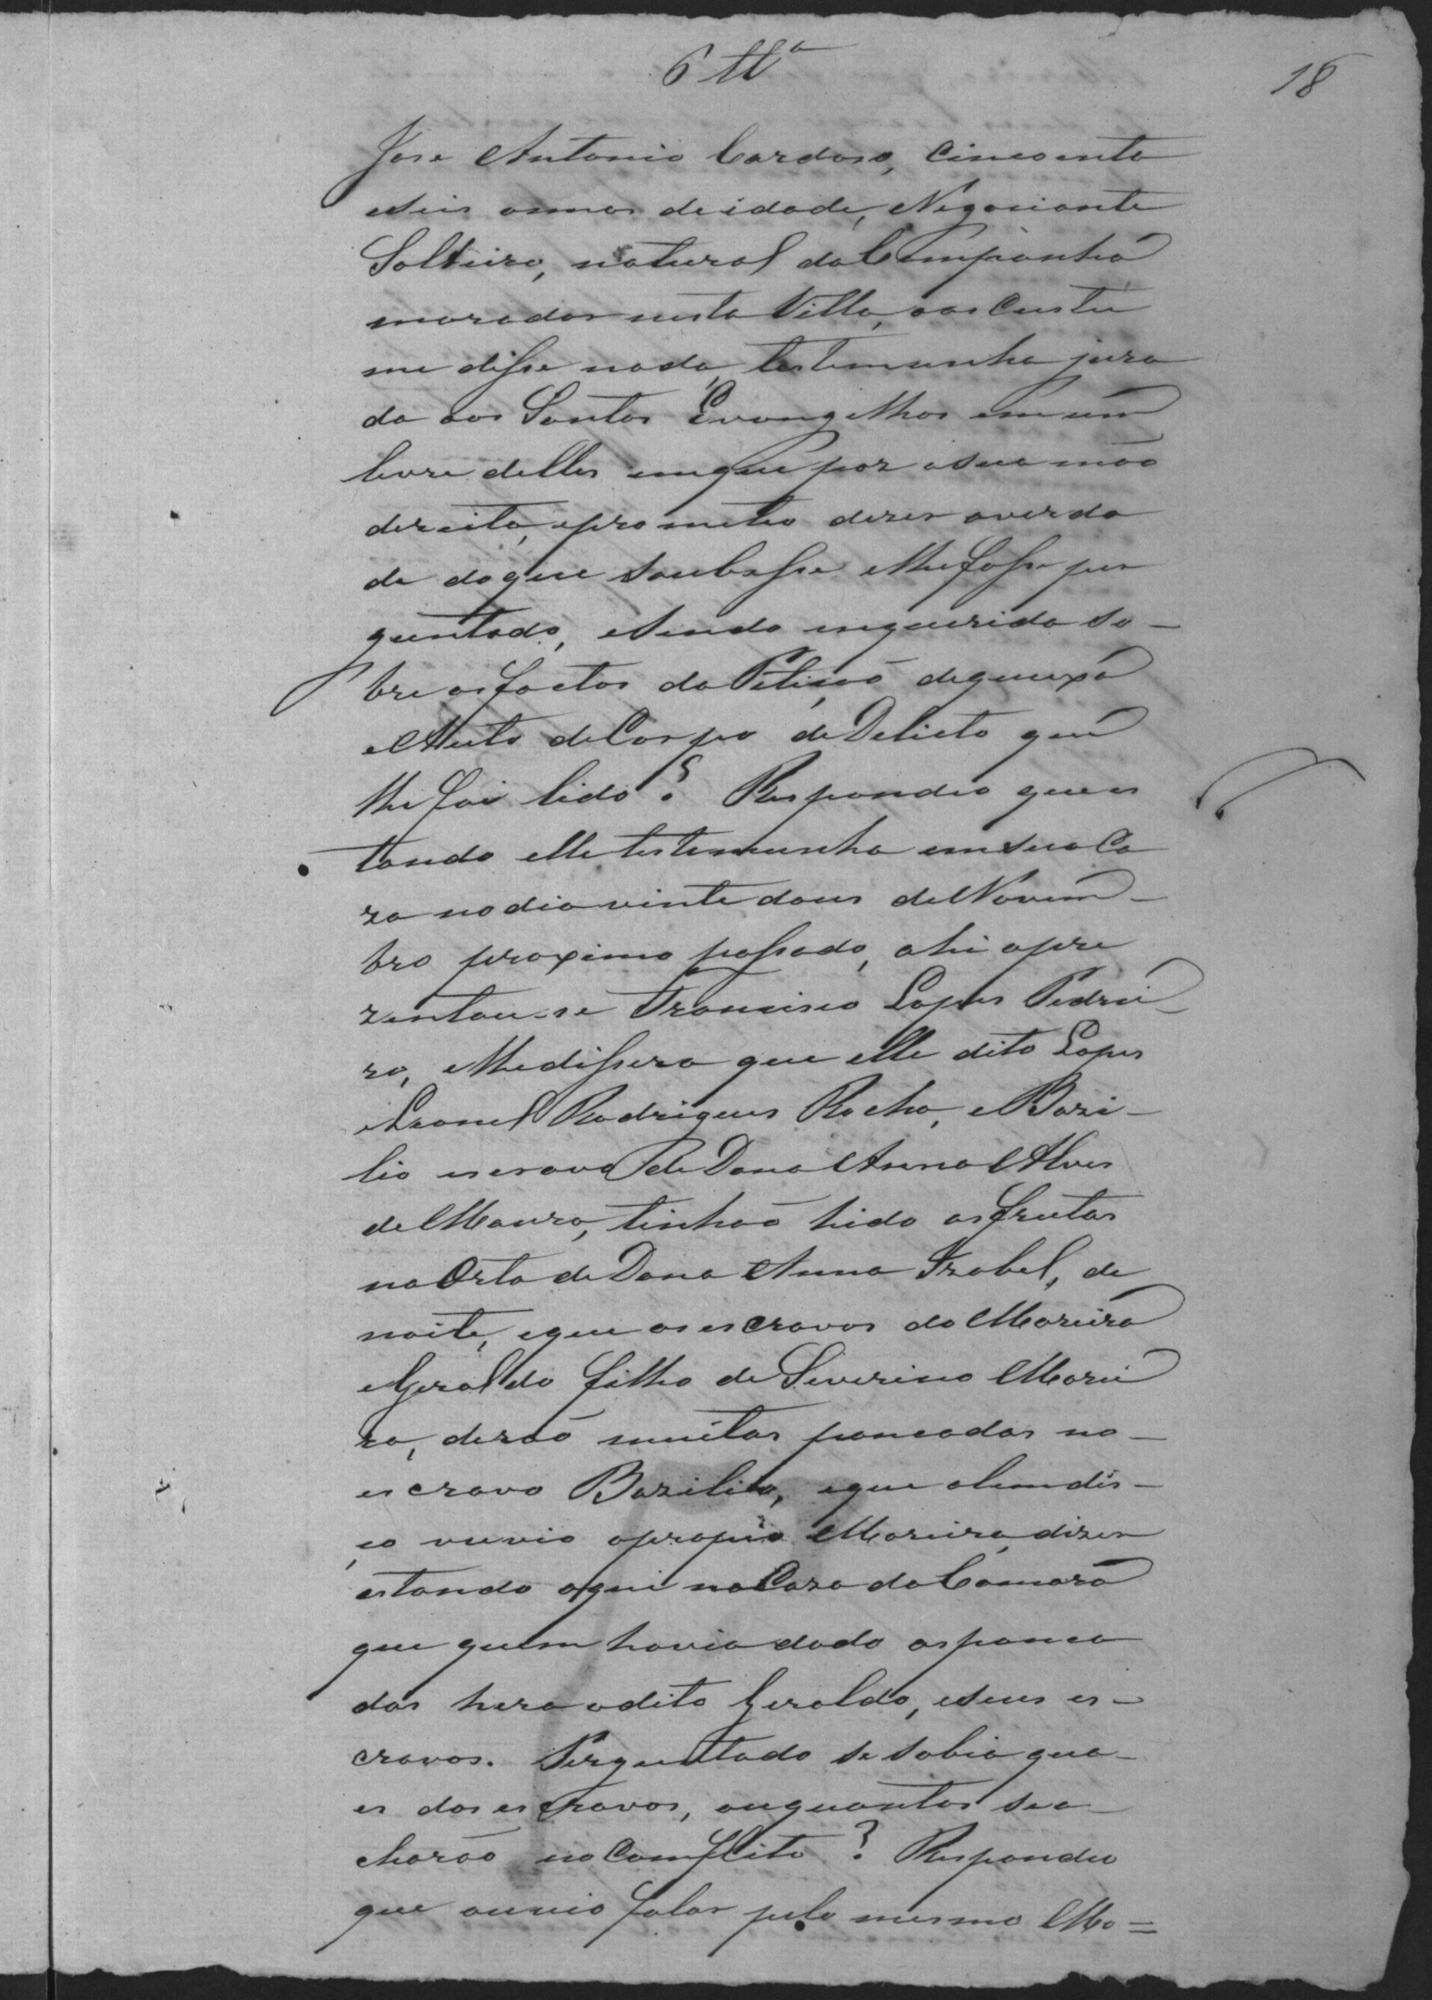 6 Ttª
18
Jose Antonio Cardoso, Cincoenta
eseis annos deidade, Negociante
Solteiro, natural da Campanha
morador nesta Villa, aos Custu
me disse nada, testemunha jura
da aos Santos Evangelhos em um
livro delles emque poz asua mão
dereita, eprometeo dizer averda
de doque soubesse elhe fosse per
guntado, esendo inquerido so-
bre osfactos da Petição dequeixa
eAuto deCorpo deDelicto que
lhe foi lido? Respondeo que es
tando elle testemunha emsua Ca
za nodia vinte dous deNovem-
bro proximo passado, ahi apre
zentou-se Francisco Lopes Pedrei-
ro, elhedissera que elle dito Lopes
eLeonel Rodrigues Rocha, eBazi-
lio escravo de Dona Anna Alves
deMoura, tinhão hido asfrutas
naOrta de Dona Anna Izabel, de
noite, eque os escravos do Moreira
eGeraldo filho de Severino Morei
ra, derão muitas pancadas no-
escravo Bazilio, eque alemdis-
ço ouvio opropio Moreira dizer
estando aqui naCaza daCamara
que quem havia dado aspanca
das hera odito Geraldo, eseus es-
cravos. Perguntado se sabia qua-
es dos escravos, ouquantos se a-
charão noComflito? Respondeo
que ouvio falar pelo mesmo Mo=